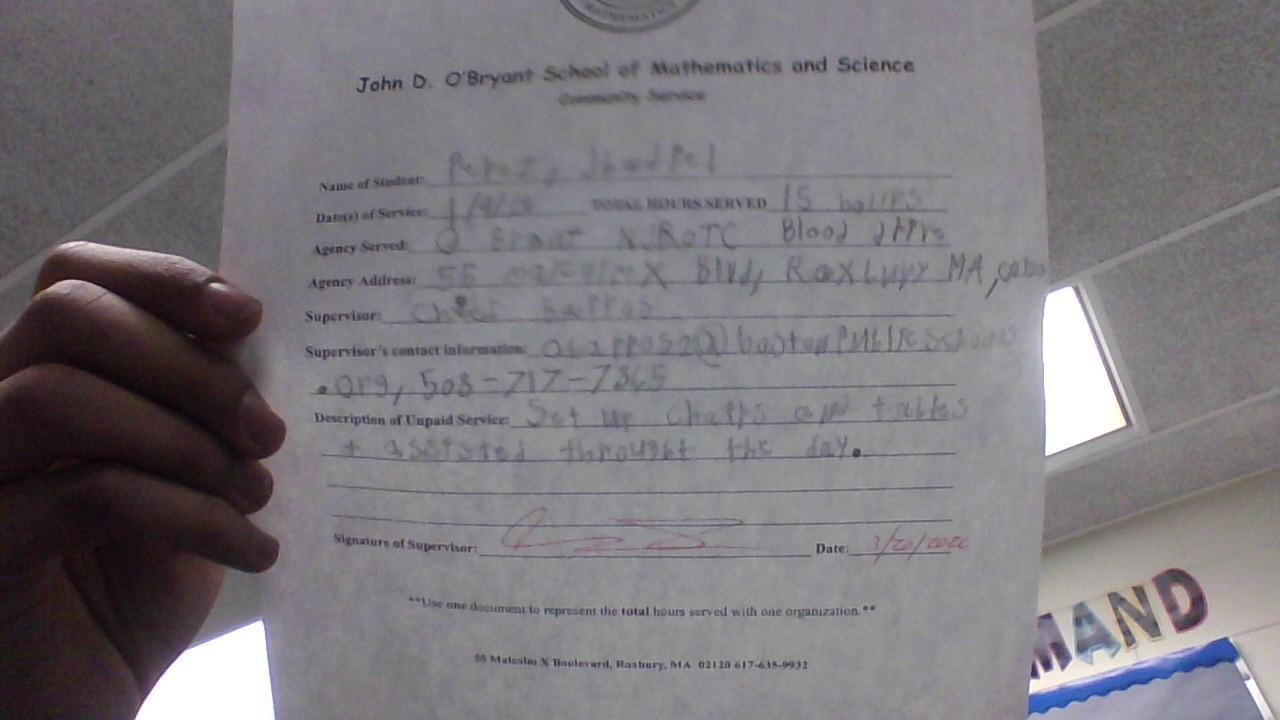 MATHEMATICS
John D. O'Bryant School of Mathematics and Science
Community Service
Name of Student: Perez,
Date(s) of Service: TOTAL HOURS SERVED 15
Agency Served: O Bryant NJROTC Blood
Agency Address: 55 malcolm X Blvd, MA,
Supervisor: Chief Barros
Supervisor's contact information:
.org, 508-717-7865
Description of Unpaid Service: Set up Chairs and tables
+ assisted throught the day.
Signature of Supervisor: Date: 3/20/2026
**Use one document to represent the total hours served with one organization.**
55 Malcolm X Boulevard, Roxbury, MA 02120 617-635-9932
MAND